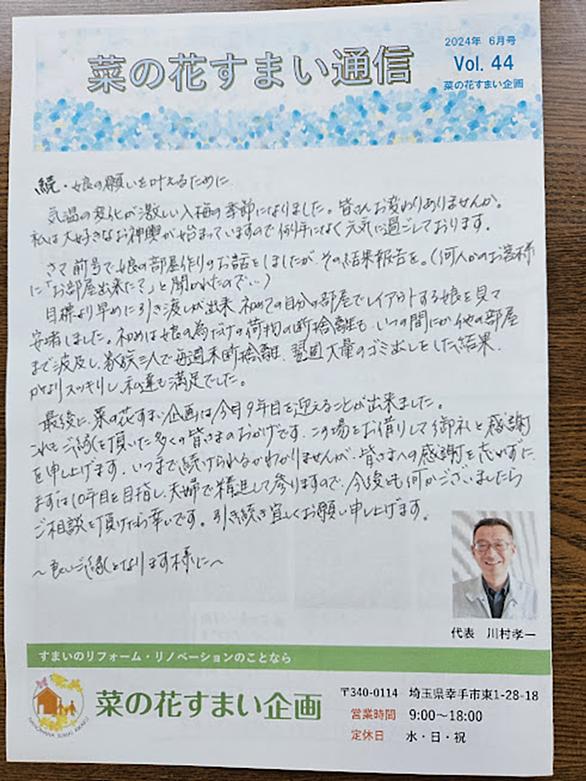 菜の花すまい通信
2024年 6月号
Vol. 44
菜の花すまい企画
続・娘の願いを叶えるために
気温の変化が激しい入梅の季節になりました。皆さんお変わりありませんか。
私は大好きなお神輿が始まっていますので例年になく元気に過ごしております。
さて前号で娘の部屋作りのお話をしましたが、その結果報告を。(何人かのお客様
に「お部屋出来た?」と聞かれたので…)
目標より早めに引き渡しが出来、初めての自分の部屋でレイアウトする娘を見て
安堵しました。初めは娘の為だけの荷物の断捨離も、いつの間にか他の部屋
まで波及し、家族三人で毎週末断捨離、翌週大量のゴミ出しをした結果、
かなりスッキリし、私達も満足でした。
最後に、菜の花すまい企画は今月9年目を迎えることが出来ました。
これもご縁を頂いた多くの皆さまのおかげです。この場をお借りして御礼と感謝
を申し上げます。いつまで続けられるかわかりませんが、皆さまへの感謝を忘れずに、
まずは10年目を目指し、夫婦で精進して参りますので、今後とも何かございましたら
ご相談を頂けたら幸いです。引き続き宜しくお願い申し上げます。
～良いご縁となります様に～
代表 川村孝一
すまいのリフォーム・リノベーションのことなら
菜の花すまい企画
〒340-0114 埼玉県幸手市東1-28-18
営業時間 9:00〜18:00
定休日 水・日・祝